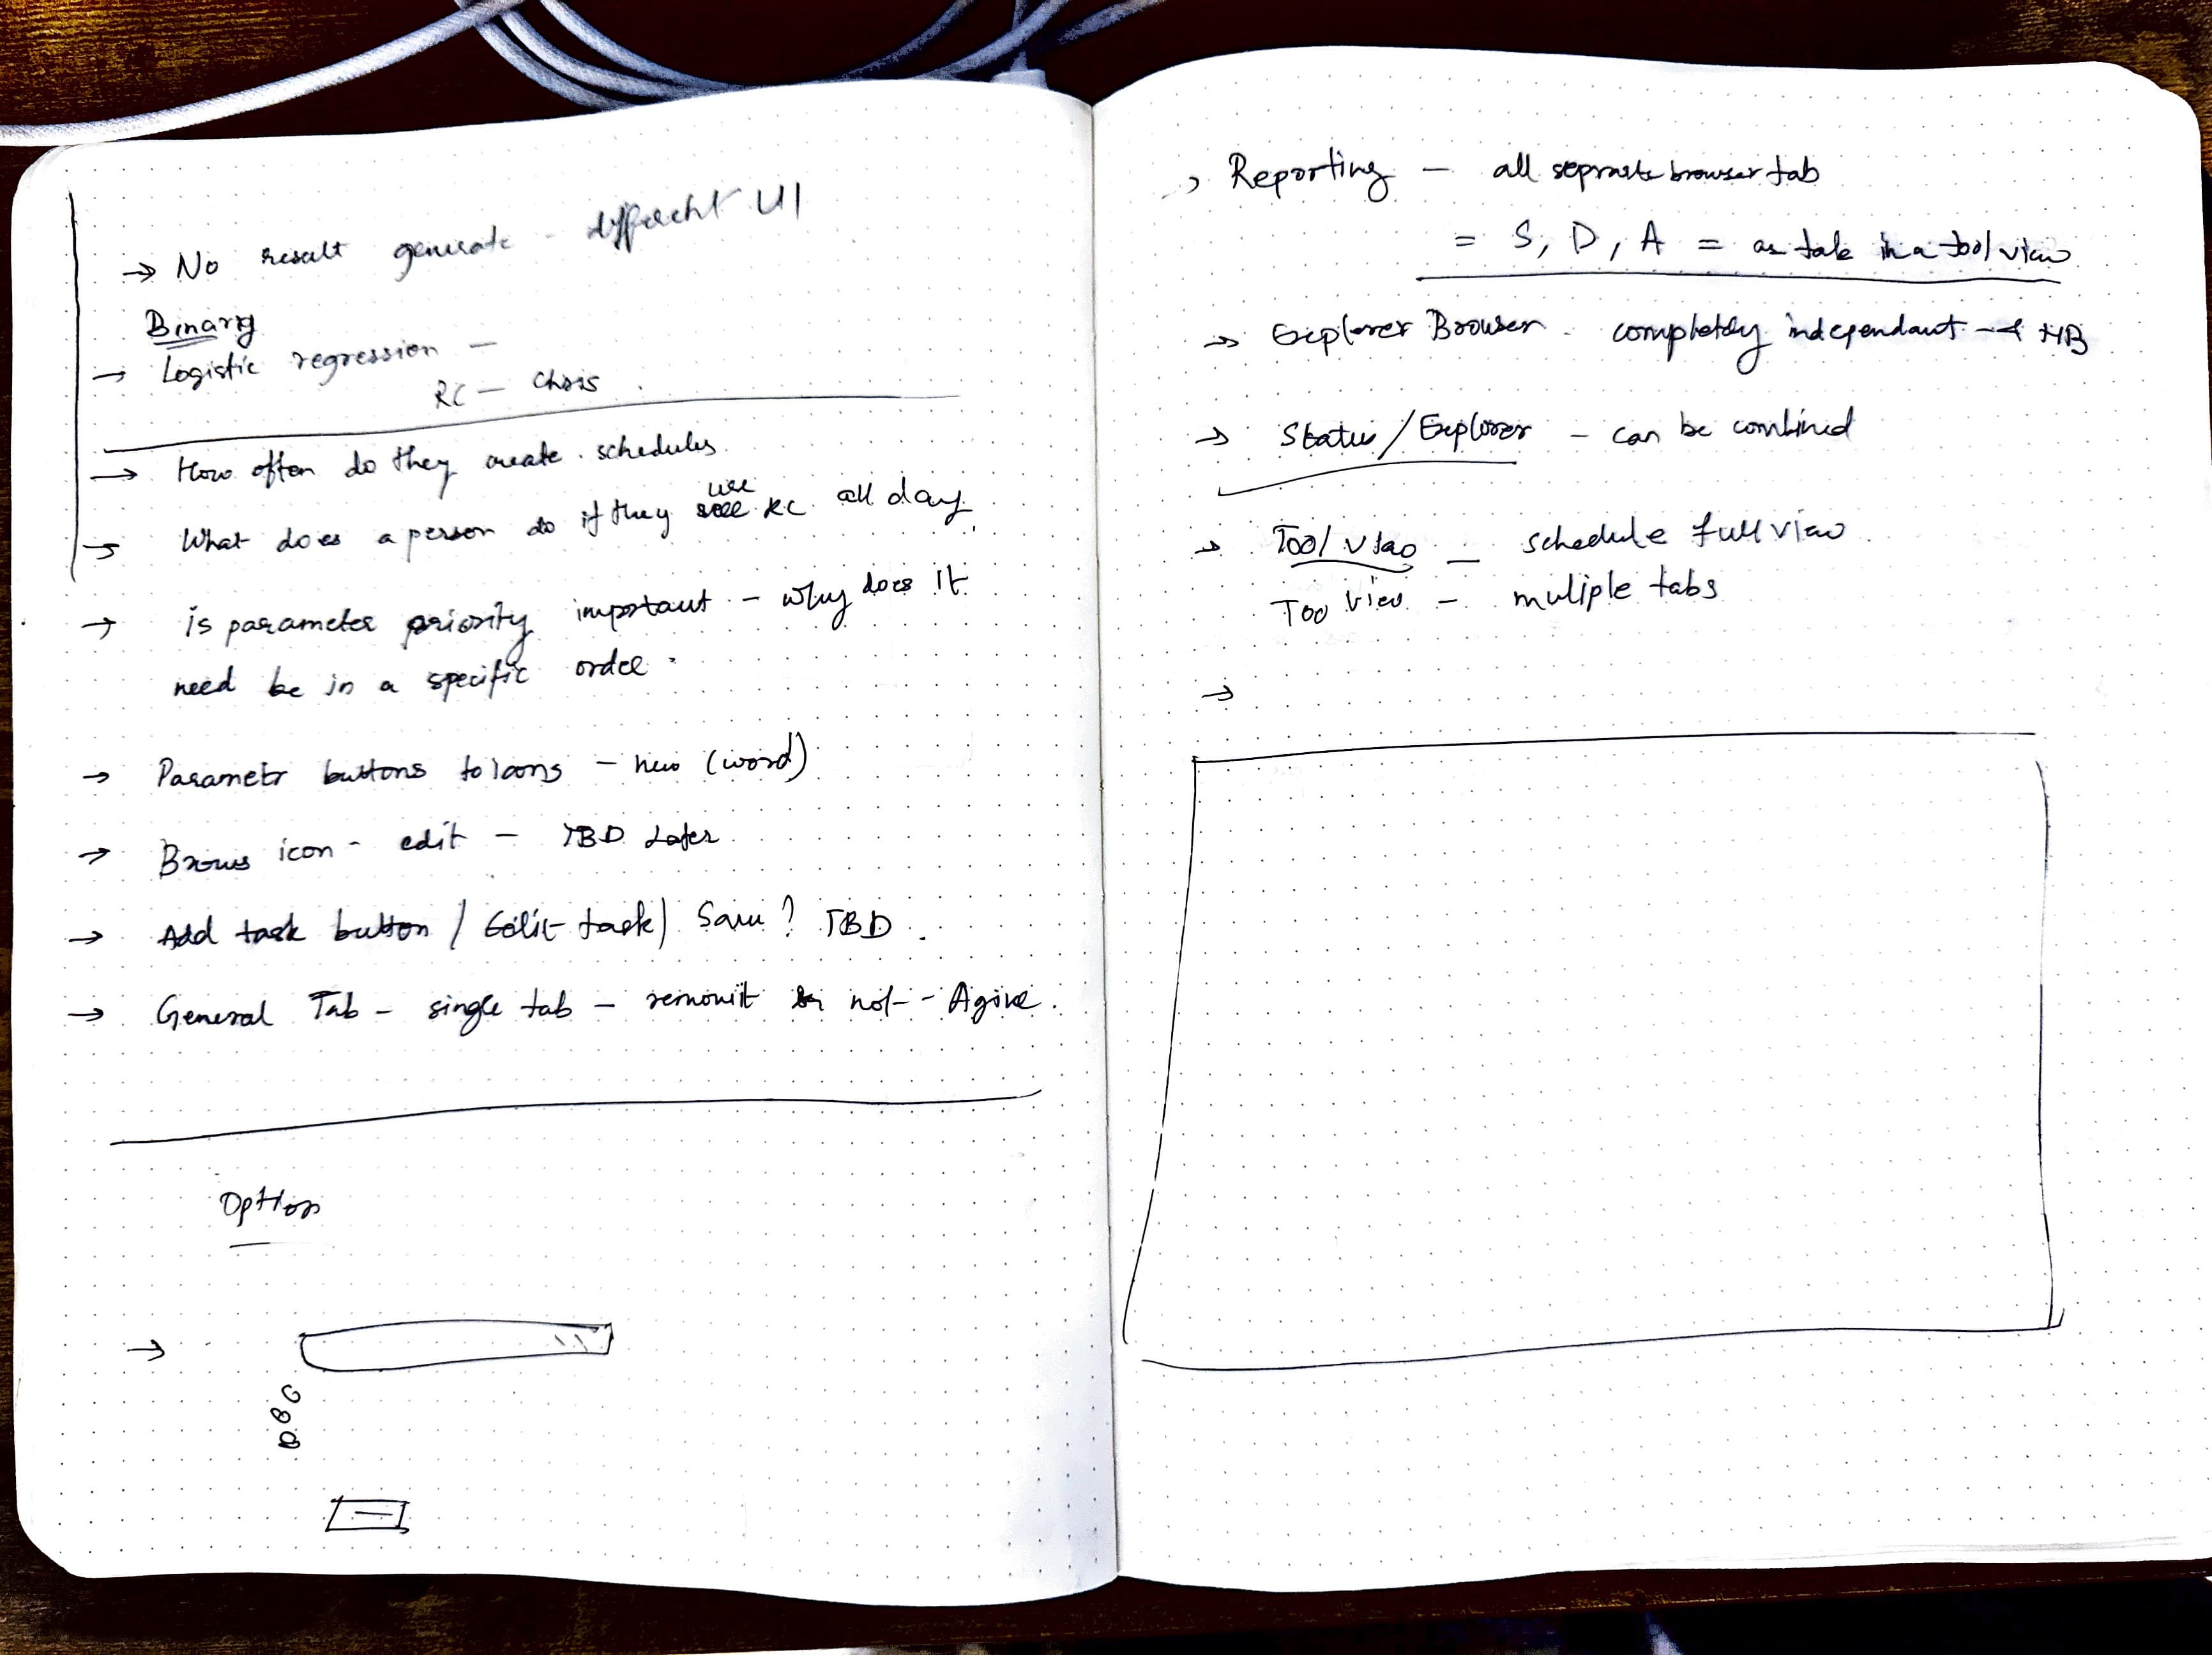 → No result generate - different UI
Binary
→ Logistic regression -
RC - Chris
→ How often do they create schedules
use
→ What does a person do if they RC all day
→ is parameter priority important - why does it
need be in a specific order
→ Parametr buttons to icons - new (word)
→ Brows icon - edit - TBD Later
→ Add task button / Edit task / Save? TBD
→ General Tab - single tab - not -
Option
→
→ Reporting - all seprate browser tab
= S, D, A = as tab in a tool view
→ Explorer Browser - completely independant - HB
→ Status/Explorer - can be combined
→ Tool view - schedule full view
Too view - muliple tabs
→